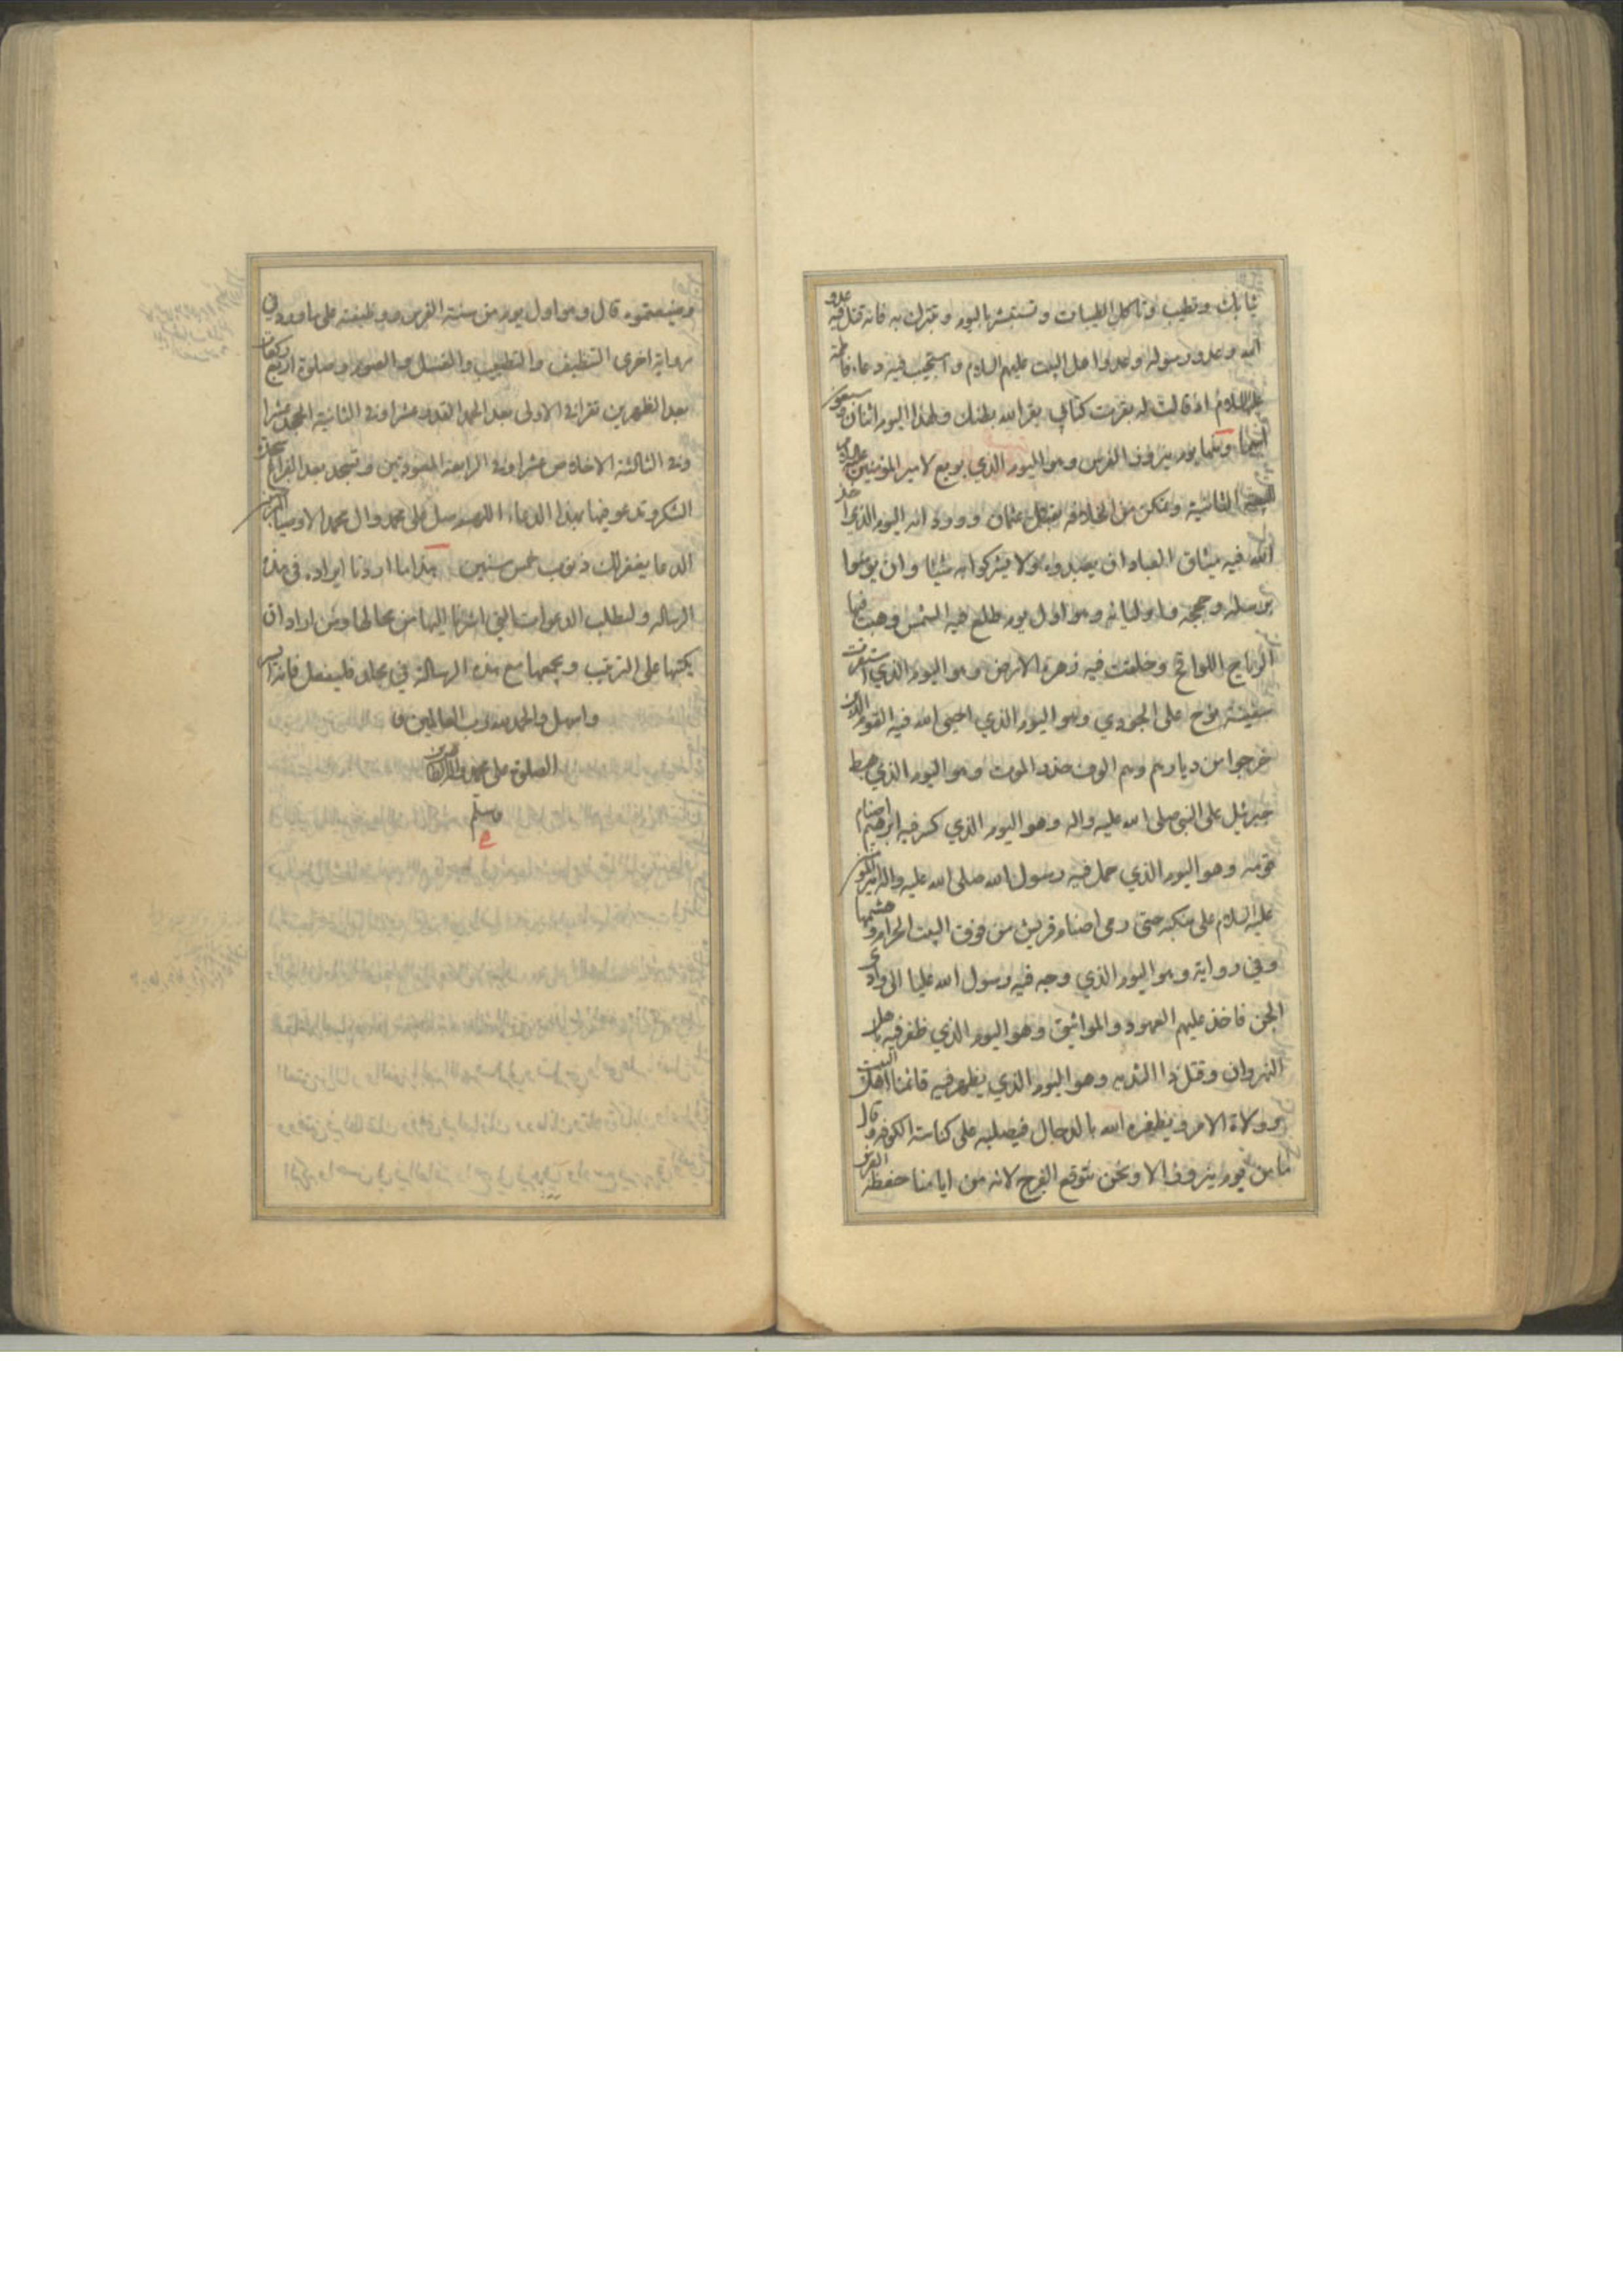 ثيابك وتطيب وتاكل الطيبات وتستبشر باليوم وتتبرك به فانه قتل فيه عدو
الله وعدو رسوله وعدو اهل البيت عليهم السلام واستجيب فيه دعاء فاطمة
عليها السلام اذ قالت له بقرت كتابي بقر الله بطنك ولهذا اليوم اثنان وسبعون
اسما ومنها يوم نيروز الفرس وهو اليوم الذي بويع لامير المؤمنين عليه السلام
الثانية وتمكن من الخلافة بقتل عثمان وورد انه اليوم الذي اخذ
الله فيه ميثاق العباد ان يعبدوه ولا يشركوا به شيئا وان يؤمنوا
برسله وحججه واوليائه وهو اول يوم طلع فيه الشمس وهبت فيها
الرياح اللواقح وخلقت فيه زهرة الارض وهو اليوم الذي استقرت
سفينة نوح على الجودي وهو اليوم الذي احيى الله فيه القوم الذين
خرجوا من ديارهم وهم الوف حذر الموت وهو اليوم الذي هبط
جبرئيل على النبي صلى الله عليه واله وهو اليوم الذي كسر فيه ابرهيم اصنام
قومه وهو اليوم الذي حمل فيه رسول الله صلى الله عليه واله امير المؤمنين
عليه السلام على منكبه حتى رمى اصنام قريش من فوق البيت الحرام وهشمها
وفي رواية وهو اليوم الذي وجه فيه رسول الله عليا الى وادي
الجن فاخذ عليهم العهود والمواثيق وهو اليوم الذي ظفر فيه باهل
النهروان وقتل ذا الثديه وهو اليوم الذي يظهر فيه قائمنا اهل البيت
وولاة الامر ويظفره الله بالدجال فيصلبه على كناسة الكوفه وقال
ما من يوم نيروز الا ونحن نتوقع الفرج لانه من ايامنا حفظه الفرس
وضيعتموه قال وهو اول يوم من سنة الفرس ووظيفته على ما ورد في
رواية اخرى التنظيف والتطيب والغسل والصوم وصلوة اربع ركعات
بعد الظهرين تقرا في الاولى بعد الحمد القدر عشرا وفي الثانية الجحد عشرا
وفي الثالثة الاخلاص عشرا وفي الرابعة المعوذتين وتسجد بعد الفراغ سجدة
الشكر وتدعو فيها بهذا الدعاء اللهم صل على محمد وال محمد الاوصياء
الدعا يغفر لك ذنوب خمس سنين هذا ما اردنا ايراده في هذه
الرسالة ولتطلب الدعوات التي اشرنا اليها من محالها ومن اراد ان
يكتبها على الترتيب ويجمعها مع هذه الرسالة في مجلد فليفعل فانه ايسر
واسهل والحمد لله رب العالمين و
الصلوة على محمد واله الطاهرين
وسلم